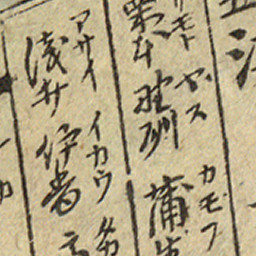 江
リモト ヤス カモフ
栗本 野洲 蒲生
アサイ イカウ タカ
淺井 伊香 高